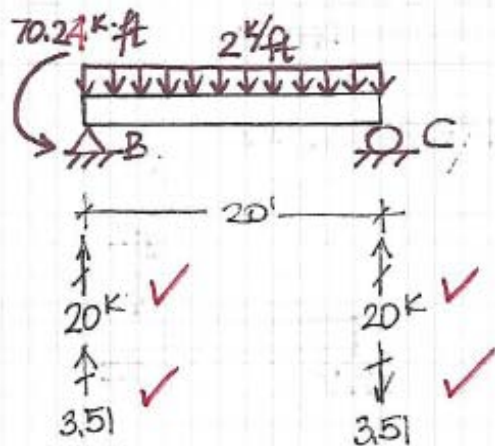 70.24 K·ft
2 K/ft
B
C
20'
20 K ✓ 20 K ✓
3.51 ✓ 3.51 ✓